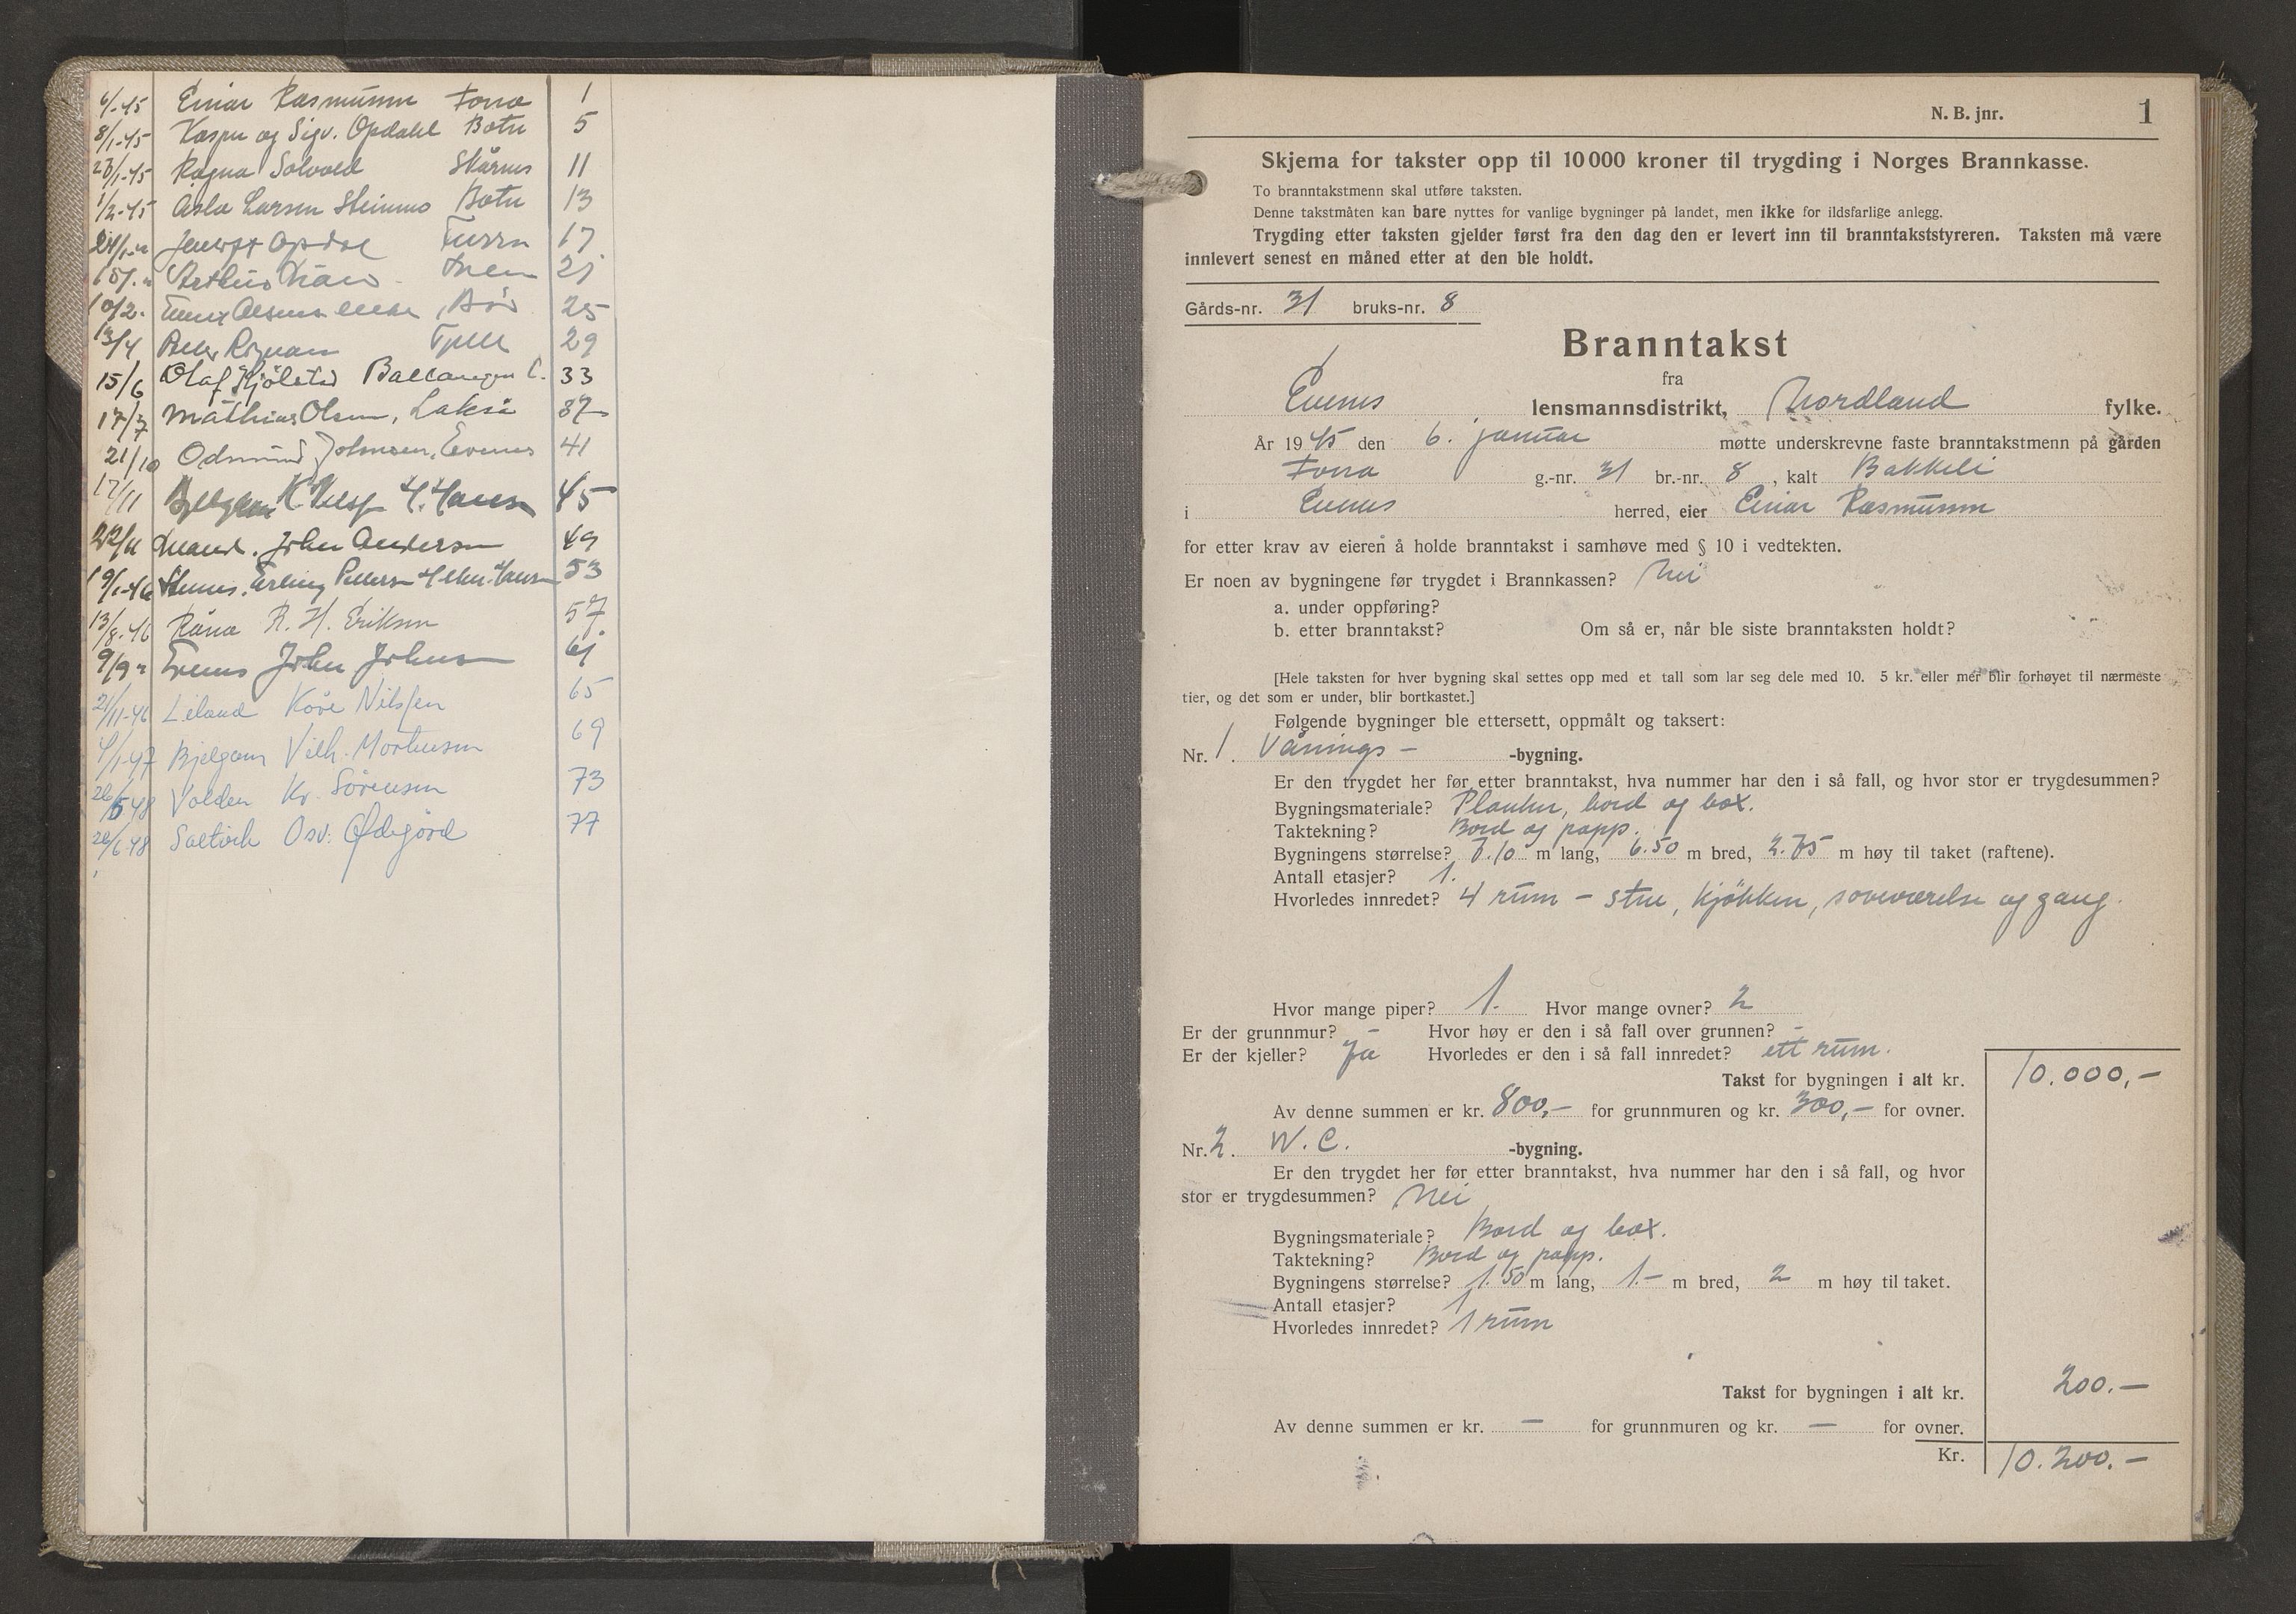 6/1-45 Einar Rasmussen Forra 1
8/1-45 Kasper og Sigv. Opdahl Botn 5
23/1-45 Ragna Solvold Skårnes 11
1/2-45 Asla Larsen Steinmo Botn 13
Opdal 17
Arthur 21
10/2. 25
13/4 Peder 29
15/6 Olaf Kjölstad Ballangen 33
17/7 Mathias Olsen, Lakså 37
21/10 Odmund Johnsen, Evenes 41
17/11 Bjellgam K. H. Hansen 45
22/11 John Andersen 49
19/1-46 Erling Pettersen 53
13/8-46 Råna R. H. Eriksen 57
9/9 " Evenes John Johnsen 61
21/11-46 Liland Kåre Nilssen 65
4/1-47 Bjelgam Vilh. Mortensen 69
26/5 48 Volden Kr. Sörensen 73
26/6-48 Saltvik Osv. Ödegård 77
N. B. jnr. 1
Skjema for takster opp til 10 000 kroner til trygding i Norges Brannkasse.
To branntakstmenn skal utføre taksten.
Denne takstmåten kan bare nyttes for vanlige bygninger på landet, men ikke for ildsfarlige anlegg.
Trygding etter taksten gjelder først fra den dag den er levert inn til branntakststyreren. Taksten må være
innlevert senest en måned etter at den ble holdt.
Gårds-nr. 31 bruks-nr. 8
Branntakst
fra
Evenes lensmannsdistrikt, Nordland fylke.
År 1945 den 6. januar møtte underskrevne faste branntakstmenn på gården
Forra g.-nr. 31 br.-nr. 8, kalt Bakkeli
i Evenes herred, eier Einar Rasmussen
for etter krav av eieren å holde branntakst i samhøve med § 10 i vedtekten.
Er noen av bygningene før trygdet i Brannkassen? Nei
a. under oppføring?
b. etter branntakst? Om så er, når ble siste branntaksten holdt?
[Hele taksten for hver bygning skal settes opp med et tall som lar seg dele med 10. 5 kr. eller mer blir forhøyet til nærmeste
tier, og det som er under, blir bortkastet.]
Følgende bygninger ble ettersett, oppmålt og taksert:
Nr. 1. Vånings- -bygning.
Er den trygdet her før etter branntakst, hva nummer har den i så fall, og hvor stor er trygdesummen?
Bygningsmateriale? Planker, bord og box.
Taktekning? Bord og papp.
Bygningens størrelse? 7.10 m lang, 6.50 m bred, 2.75 m høy til taket (raftene).
Antall etasjer? 1.
Hvorledes innredet? 4 rum - stue, kjökken, soveværelse og gang.
Hvor mange piper? 1. Hvor mange ovner? 2
Er der grunnmur? - Hvor høy er den i så fall over grunnen? -
Er der kjeller? Ja Hvorledes er den i så fall innredet? ett rum.
Takst for bygningen i alt kr. 10.000,-
Av denne summen er kr. 800,- for grunnmuren og kr. 300,- for ovner.
Nr. 2. W.C. -bygning.
Er den trygdet her før etter branntakst, hva nummer har den i så fall, og hvor
stor er trygdesummen? Nei
Bygningsmateriale? Bord og box.
Taktekning? Bord og papp.
Bygningens størrelse? 1.50 m lang, 1.- m bred, 2 m høy til taket.
Antall etasjer? 1
Hvorledes innredet? 1 rum
Takst for bygningen i alt kr. 200.-
Av denne summen er kr. - for grunnmuren og kr. - for ovner.
Kr. 10.200.-